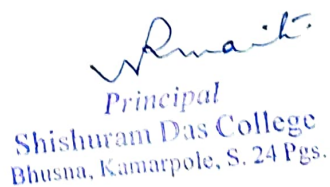 Principal
Shishuram Das College
Bhusna, Kamarpole, S. 24 Pgs.